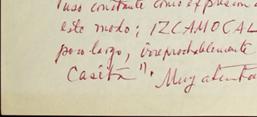 uso constante como expresión d
este modo; IZCAMOCAL
poco largo, irreprochablemente
Casita". Muy atenta